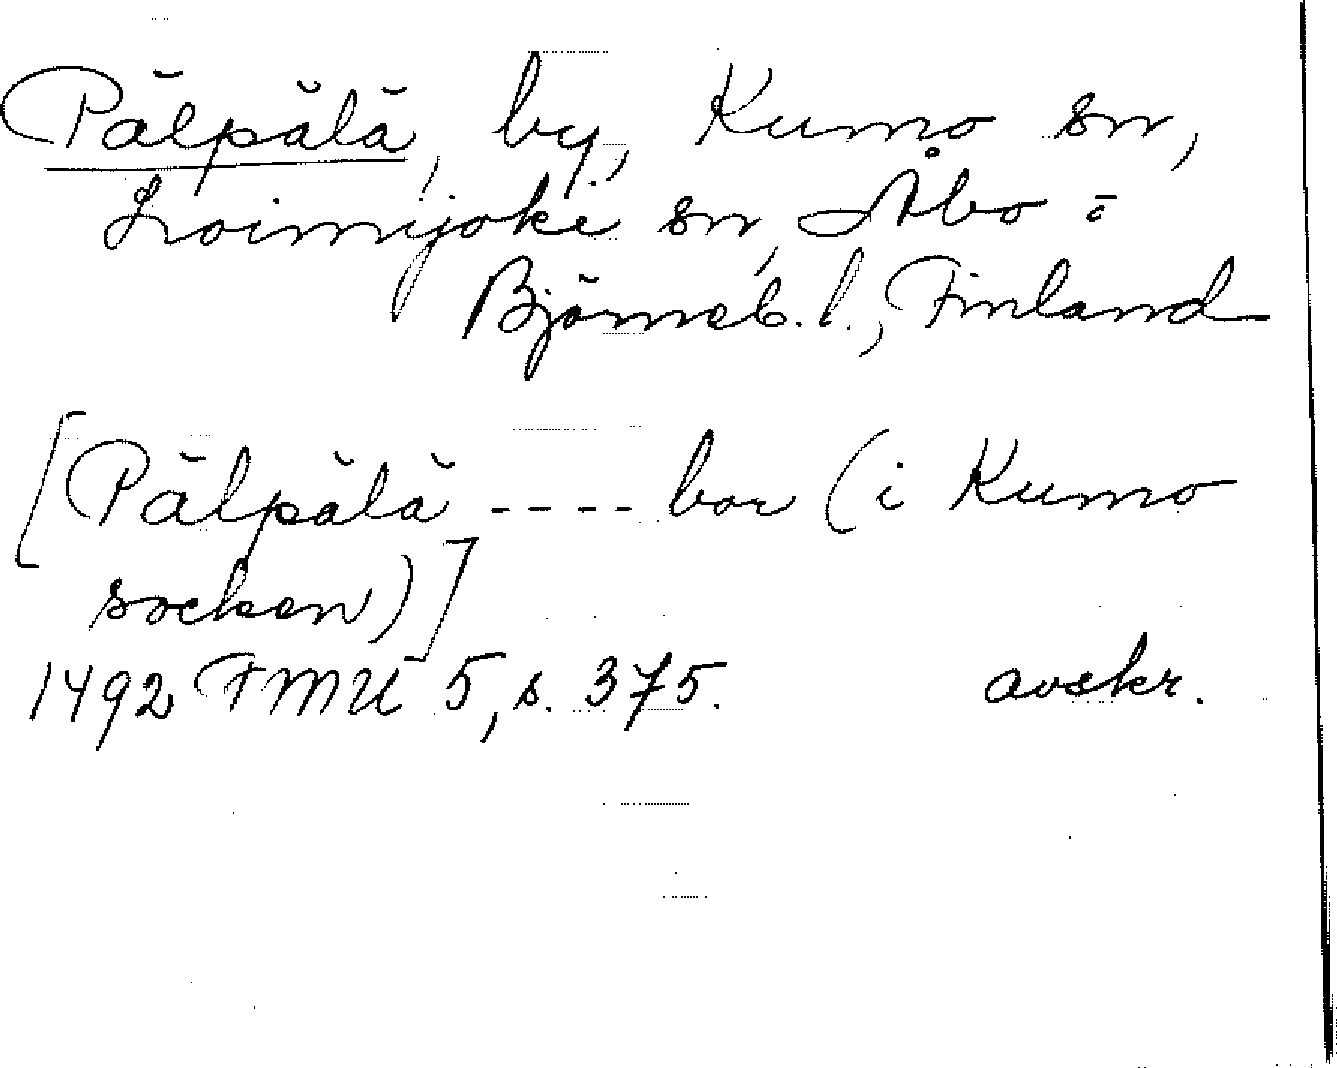 Pälpälä, by, Kumo sn,
Loimijoki sn, Åbo =
Björneb. l., Finland
[Pälpälä ---- bor (i Kumo
socken)]
1492 FMU 5, s. 375. avskr.